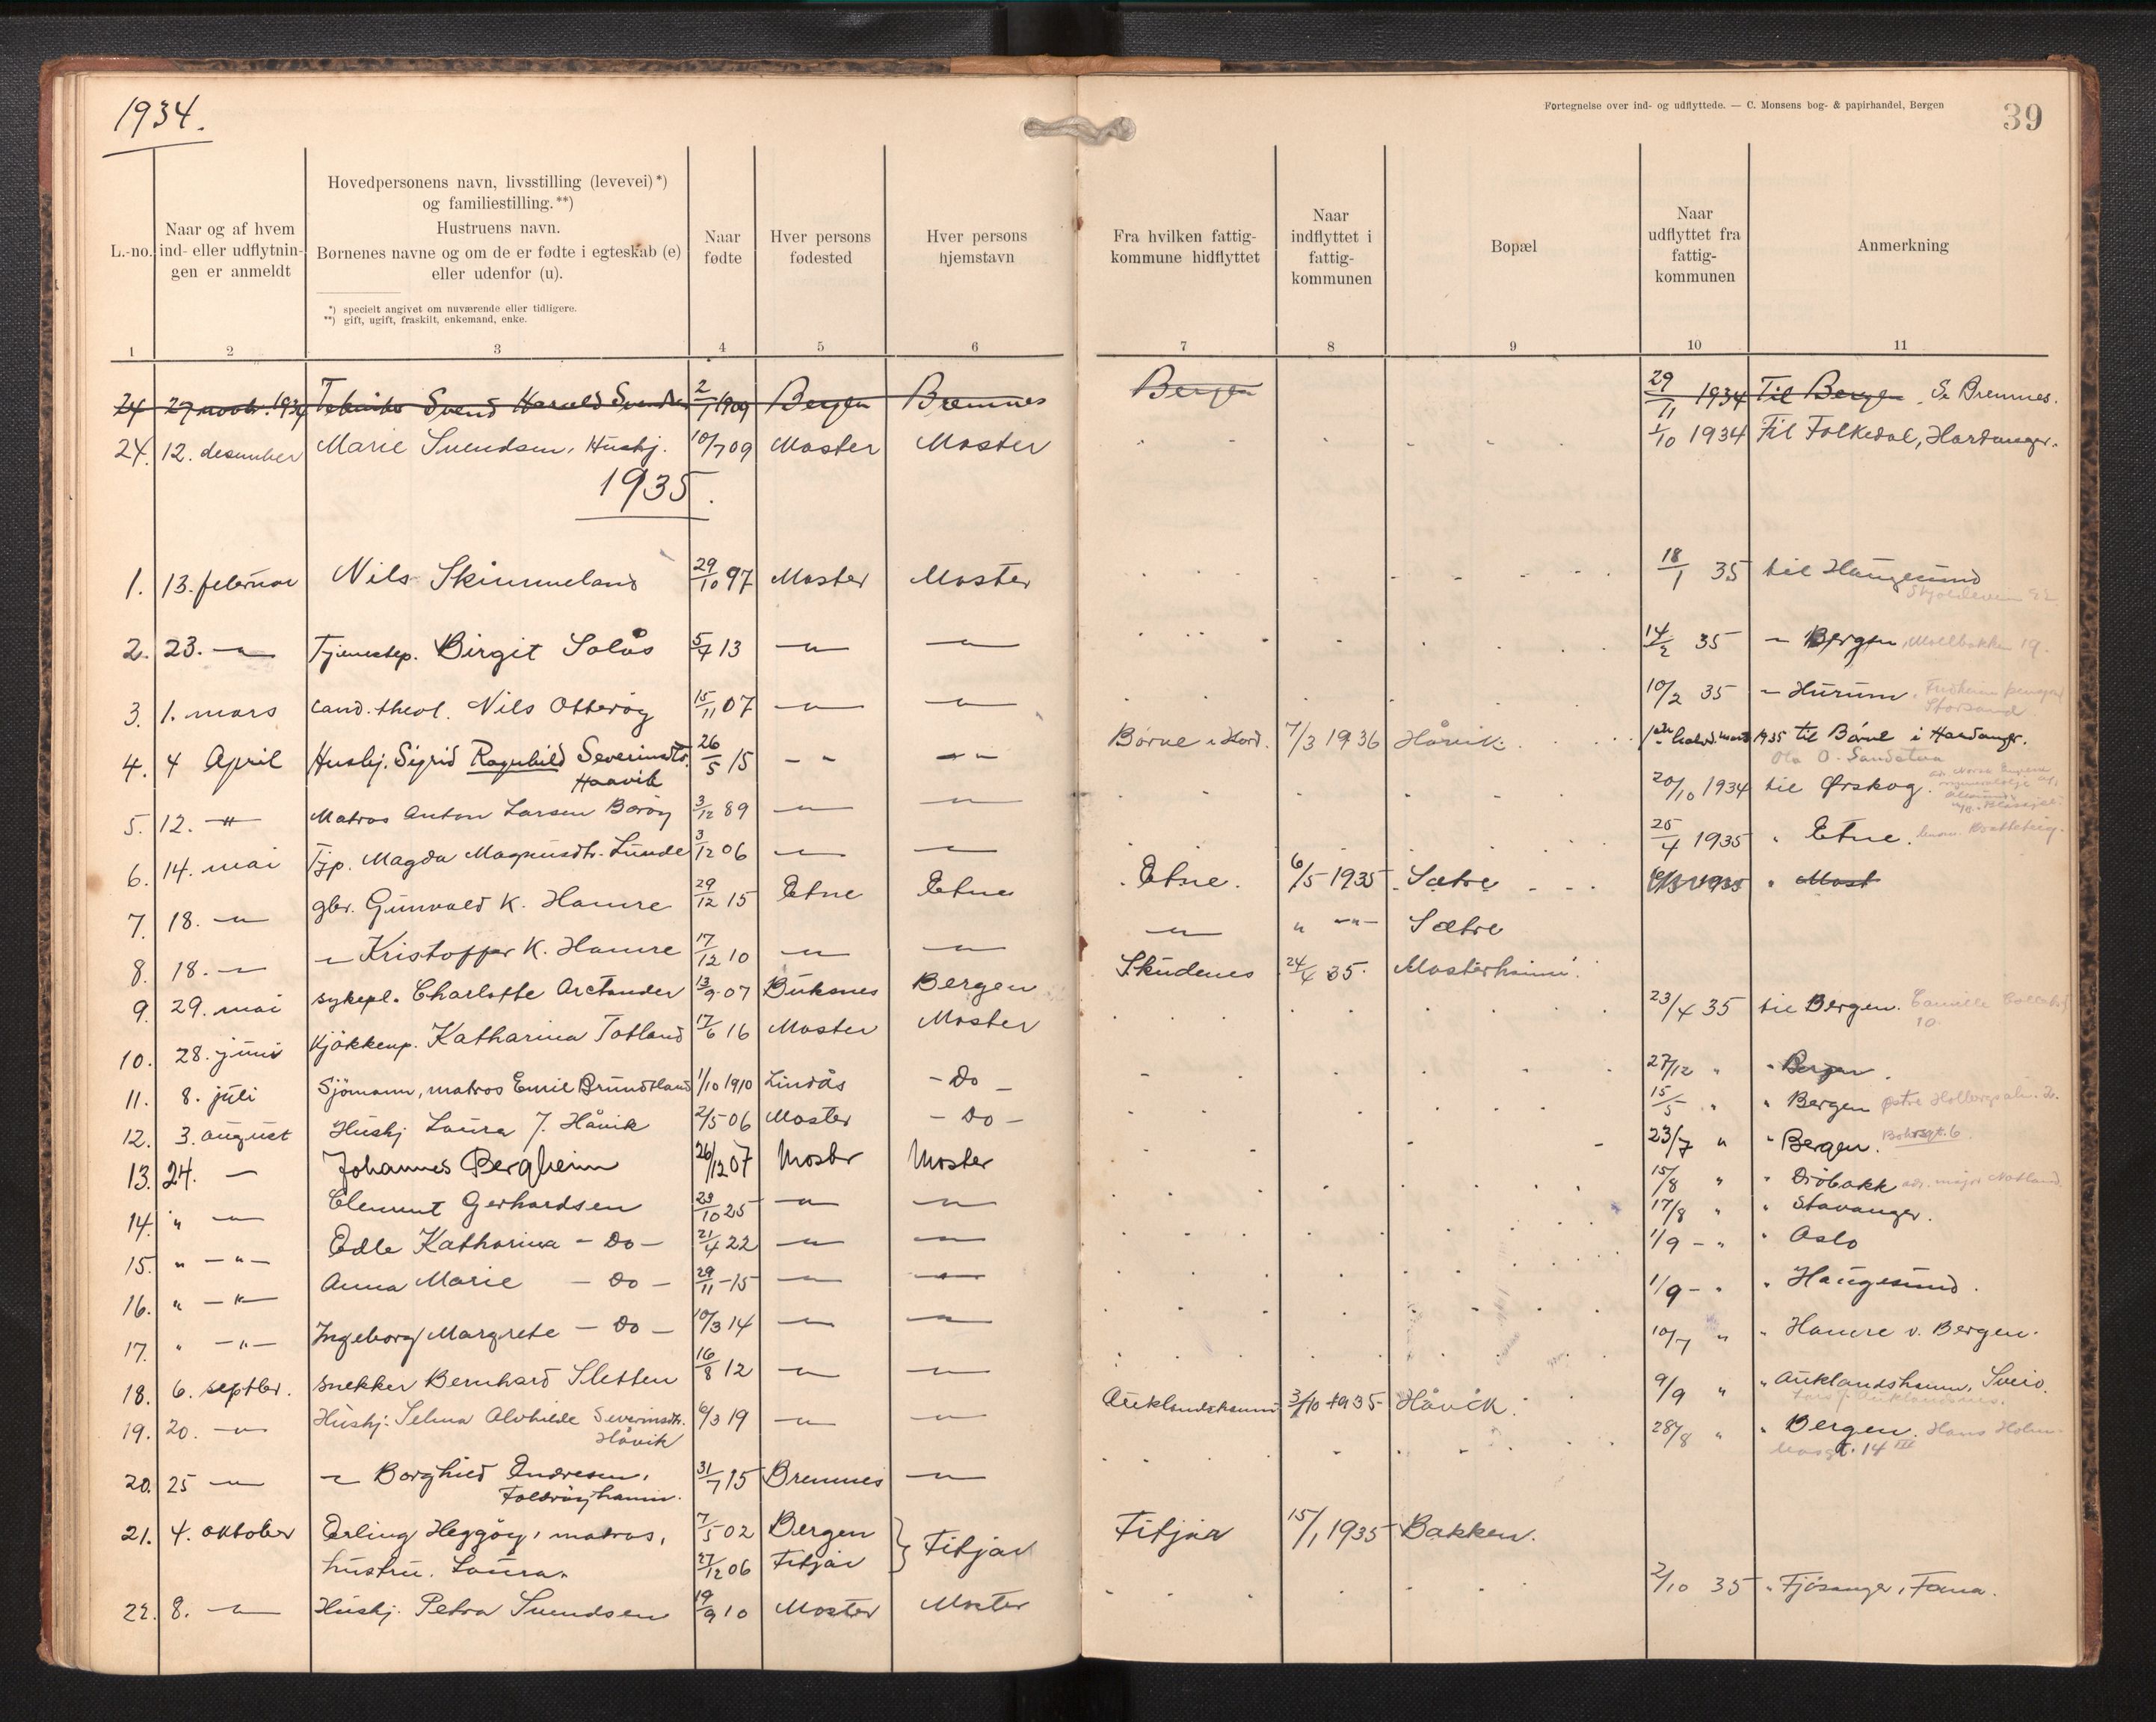 1934.
Fortegnelse over ind- og udflyttede. — C. Monsens bog- & papirhandel, Bergen
39
L.-no.
Naar og af hvem ind- eller udflytnin- gen er anmeldt
Hovedpersonens navn, livsstilling (levevei) *)
og familiestilling. **)
Hustruens navn.
Børnenes navne og om de er fødte i egteskab (e)
eller udenfor (u).
*) specielt angivet om nuværende eller tidligere.
**) gift, ugift, fraskilt, enkemand, enke.
Naar fødte
Hver persons fødested
Hver persons hjemstavn
Fra hvilken fattig- kommune hidflyttet
Naar indflyttet i fattig- kommunen
Bopæl
Naar udflyttet fra fattig- kommunen
Anmerkning
1 2 3 4 5 6 7 8 9 10 11
24 27 novb. 1934 Svend Harald Svendsen 2/1 1909 Bergen Bremnes Bergen 29/11 1934 Til Bergen. Se Bremnes.
24. 12. desember Marie Svendsen, Hushj. 10/7 09 Moster Moster 1/10 1934 Til Folkedal, Hardanger.
1935.
1. 13. februar Nils Skimmeland 29/10 97 Moster Moster 18/1 35 til Haugesund
2. 23. — " — Tjenestep. Birgit Solås 5/4 13 — " — — " — 14/2 35 — " Bergen, Møllbakken 19.
3. 1. mars cand. theol. Nils Otterøy 15/11 07 — " — — " — 10/2 35 — Hurum. Fredheim
Storsand.
4. 4 April Hushj. Sigrid Ragnhild Severinsdtr. 26/5 15 — " — " Børve i Hard. 7/3 1936 Håvik. 1ste halvd. mars 1935 til Børve i Hardanger.
Haavik
Ola O. Sandstøa
5. 12. — " — Matros Anton Larsen Børøy 3/12 89 — " — — " — 20/10 1934 til Ørskog.
6. 14. mai Tjp. Magda Magnusdtr. Lunde 3/12 06 — " — — " — 25/4 1935 " Etne.
7. 18. — " — gbr. Gunvald K. Hamre 29/12 15 Etne Etne Etne. 6/5 1935 Sætre " Most
8. 18. — " — " Kristoffer K. Hamre 17/12 10 — " — — " — — " — " — " — Sætre
9. 29. mai sykepl. Charlotte Arctander 13/9 07 Buksnes Bergen Skudenes 24/4 35. Mosterhamn.
10. 28. juni Kjøkkenp. Katharina Totland 17/6 16 Moster Moster 23/4 35 til Bergen.
10.
11. 8. juli Sjømann, matros Emil Brundtland 1/10 1910 Lindås — Do — 27/12 " " Bergen.
12. 3. august Hushj Laura J. Håvik 2/5 06 Moster — Do — 15/5 " " Bergen Østre Holbergsalm. 2.
13. 24. — Johannes Bergheim 26/12 07 Moster Moster 23/7 " " Bergen.
14. " — " — Clement Gerhardsen 23/10 25 — " — — " — 15/8 " " Drøbakk
15. " — " — Edle Katharina — Do — 21/4 22 — " — — " — 17/8 " " Stavanger.
16. " — " — Anna Marie — Do — 29/11 - 15 — " — — " — 1/9 — " " Oslo
17. " — " — Ingeborg Margrete — Do — 10/3 14 — " — — " — 1/9 — " " Haugesund.
18. 6. septbr. snekker Bernhard Sletten 16/8 12 — " — — " — 10/7 " " Hamre v. Bergen.
19. 20. — " — Hushj. Selma Alvhilde Severinsdtr. 6/3 19 — " — — " — Auklandshamn 3/10 1935 Håvik. 9/9 " " Auklandshamn, Sveio.
Håvik
20. 25 — " — — " Borghild Endresen, 31/7 15 Bremnes — " — 28/8 " " Bergen. Hans Holm-
Foldrøyhamn. 14 III
21. 4. oktober Erling Heggøy, matros, 7/5 02 Bergen } Fitjar Fitjar 15/1 1935 Bakken.
hustru. Laura. 27/12 06 Fitjar
22. 8. — " — Hushj. Petra Svendsen 19/9 10 Moster Moster 2/10 35 " Fjøsanger, Fana.